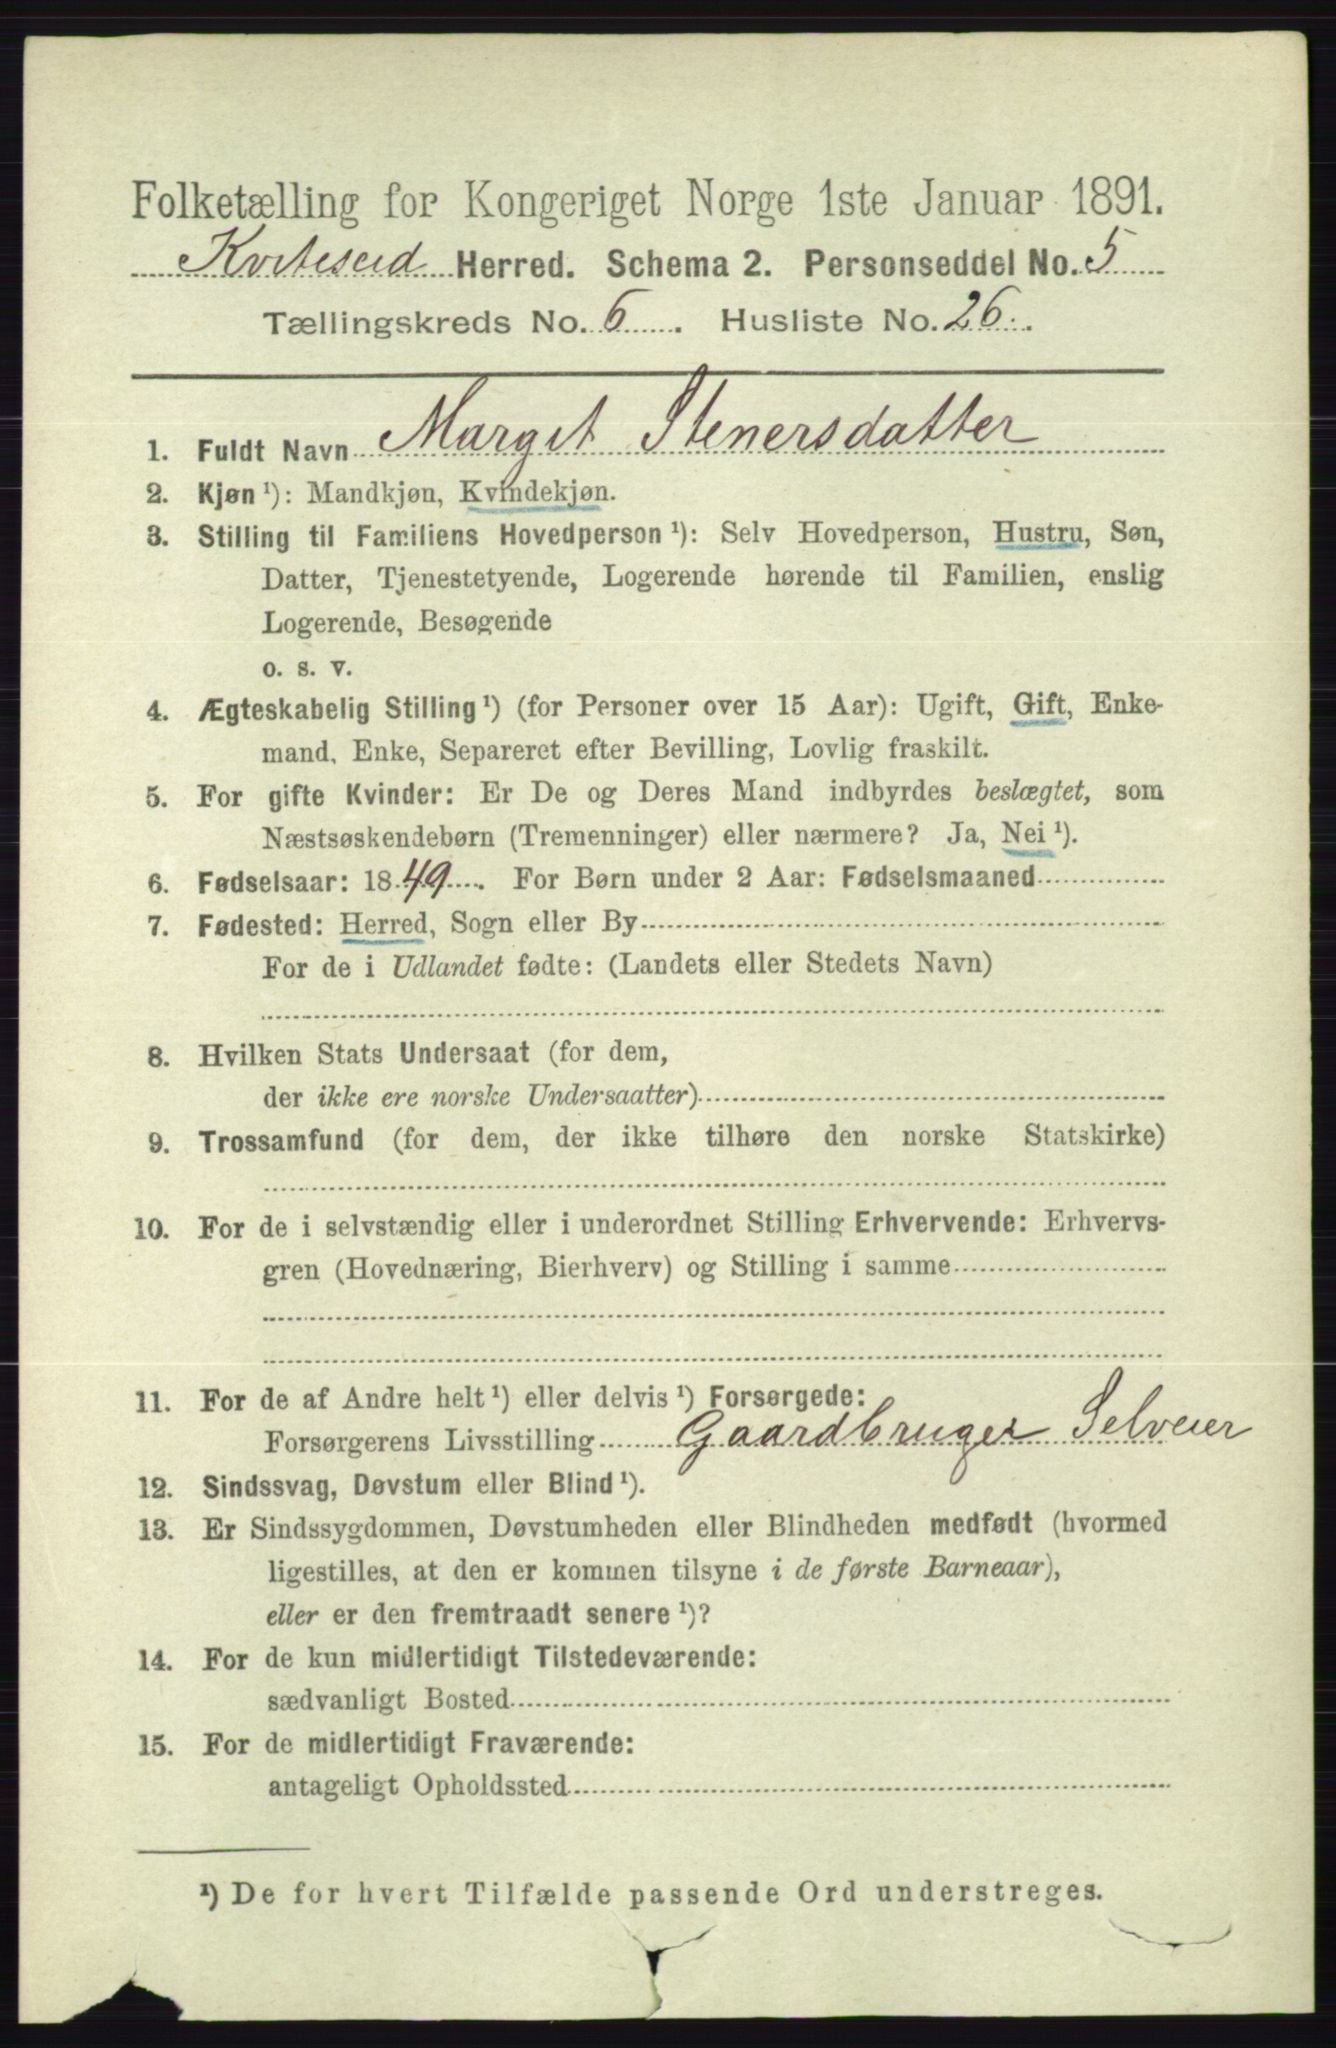 Folketælling for Kongeriget Norge 1ste Januar 1891.
Kviteseid Herred. Schema 2. Personseddel No. 5
Tællingskreds No. 6. Husliste No. 26.
1. Fuldt Navn Margit Stenersdatter
2. Kjøn ¹): Mandkjøn, Kvindekjøn.
3. Stilling til Familiens Hovedperson ¹): Selv Hovedperson, Hustru, Søn,
Datter, Tjenestetyende, Logerende hørende til Familien, enslig
Logerende, Besøgende
o. s. v.
4. Ægteskabelig Stilling ¹) (for Personer over 15 Aar): Ugift, Gift, Enke-
mand, Enke, Separeret efter Bevilling, Lovlig fraskilt.
5. For gifte Kvinder: Er De og Deres Mand indbyrdes beslægtet, som
Næstsøskendebørn (Tremenninger) eller nærmere? Ja, Nei ¹).
6. Fødselsaar: 1849. For Børn under 2 Aar: Fødselsmaaned
7. Fødested: Herred, Sogn eller By
For de i Udlandet fødte: (Landets eller Stedets Navn)
8. Hvilken Stats Undersaat (for dem,
der ikke ere norske Undersaatter)
9. Trossamfund (for dem, der ikke tilhøre den norske Statskirke)
10. For de i selvstændig eller i underordnet Stilling Erhvervende: Erhvervs-
gren (Hovednæring, Bierhverv) og Stilling i samme
11. For de af Andre helt ¹) eller delvis ¹) Forsørgede:
Forsørgerens Livsstilling Gaardbruger Selveier
12. Sindssvag, Døvstum eller Blind ¹).
13. Er Sindssygdommen, Døvstumheden eller Blindheden medfødt (hvormed
ligestilles, at den er kommen tilsyne i de første Barneaar),
eller er den fremtraadt senere ¹)?
14. For de kun midlertidigt Tilstedeværende:
sædvanligt Bosted
15. For de midlertidigt Fraværende:
antageligt Opholdssted
¹) De for hvert Tilfælde passende Ord understreges.